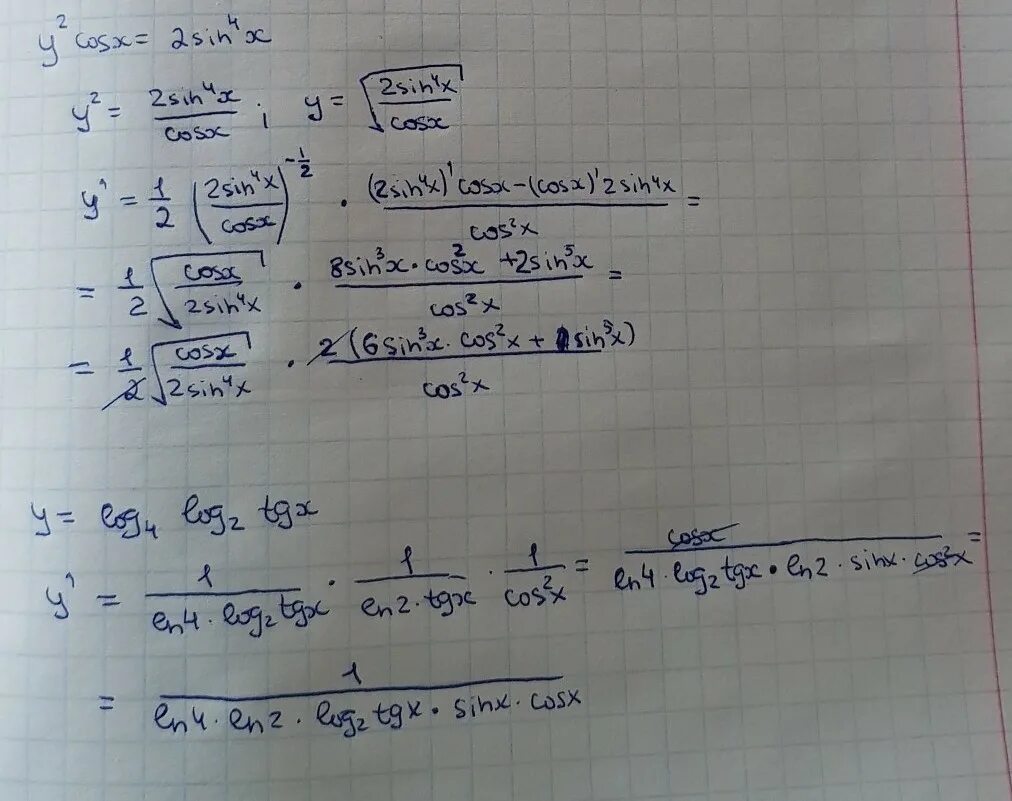 y² cosx = 2sin⁴x
y² = 2sin⁴x / cosx ; y = √(2sin⁴x / cosx)
y' = 1/2 (2sin⁴x / cosx)^(-1/2) · ((2sin⁴x)' cosx - (cosx)' 2sin⁴x) / cos²x =
= 1/2 √(cosx / 2sin⁴x) · (8sin³x · cos²x + 2sin⁵x) / cos²x =
= 1/2 √(cosx / 2sin⁴x) · 2(6sin³x · cos²x + sin³x) / cos²x
y = log₄ log₂ tgx
y' = 1 / (ln4 · log₂tgx) · 1 / (ln2 · tgx) · 1 / cos²x = cosx / (ln4 · log₂tgx · ln2 · sinx · cos²x) =
= 1 / (ln4 · ln2 · log₂tgx · sinx · cosx)